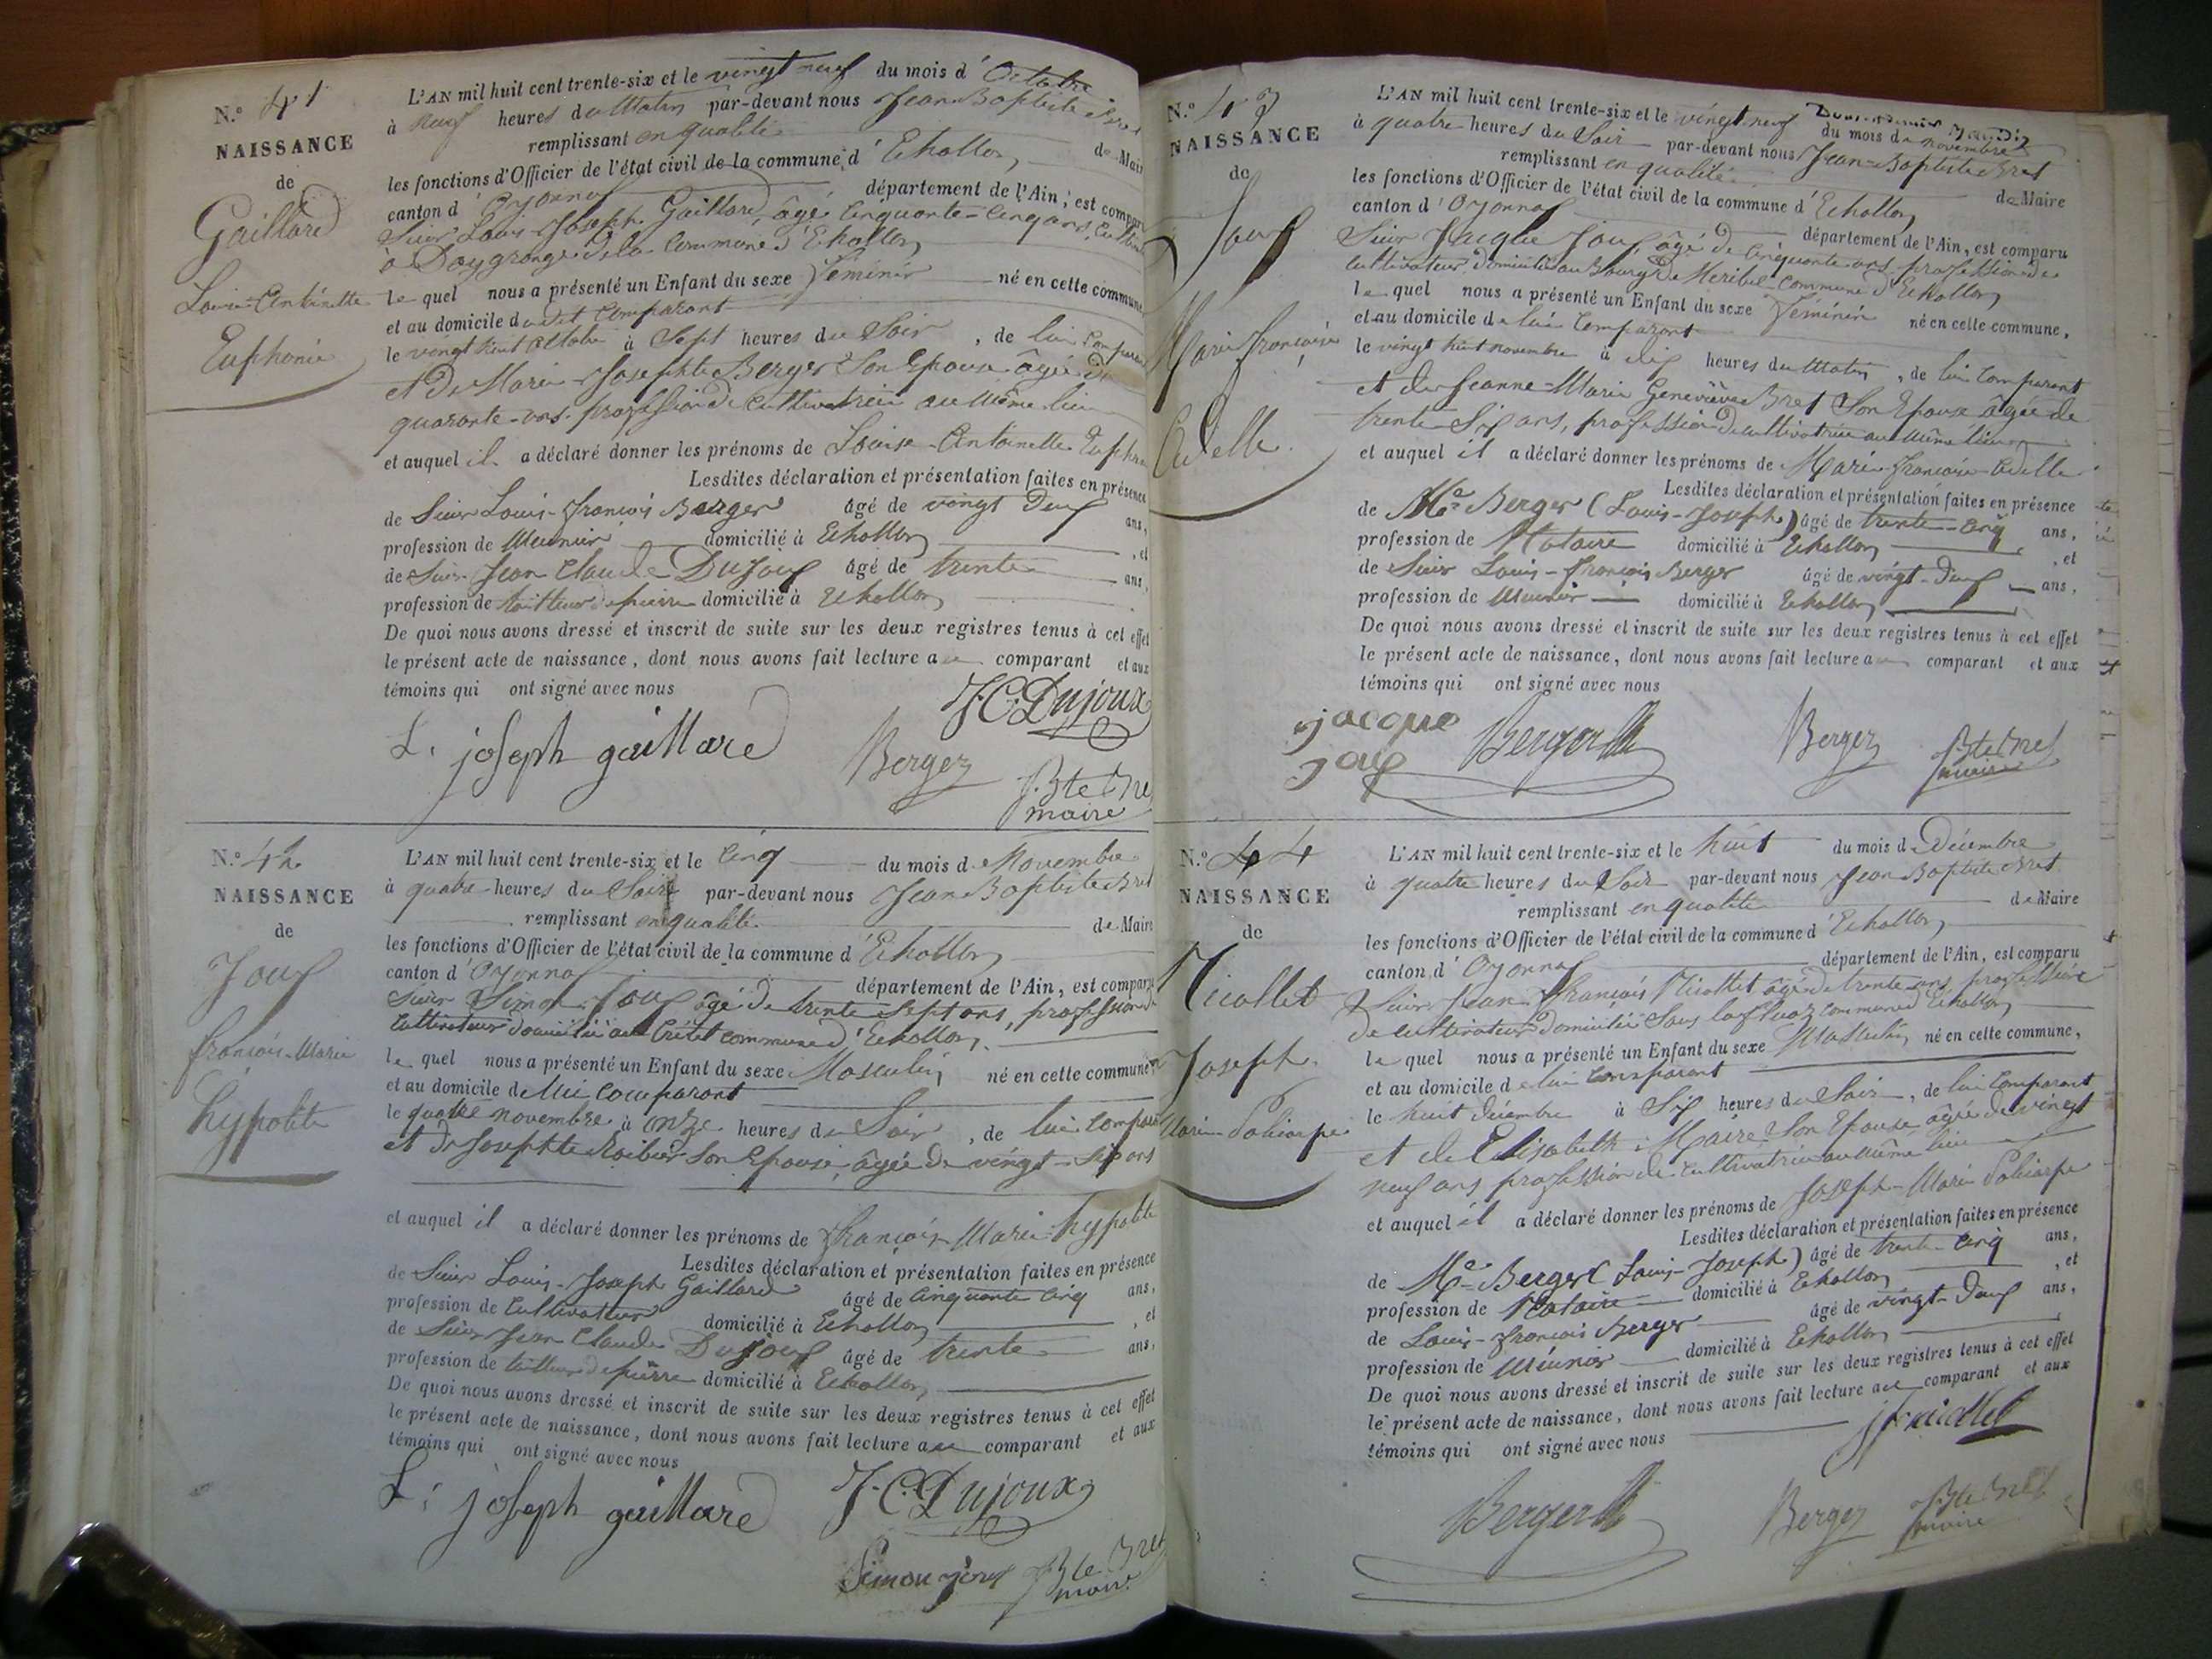 N.º 41
NAISSANCE
de
Gaillard
Louise-Antoinette
Euphonie
L'AN mil huit cent trente-six et le vingt neuf du mois d'Octobre
à neuf heures du Matin par-devant nous Jean Baptiste Bret
remplissant en qualité de Maire
les fonctions d'Officier de l'état civil de la commune d'Echallon
canton d'Oyonnax département de l'Ain, est comparu
Sieur Louis Joseph Gaillard, âgé Cinquante-Cinq ans,
à de la Commune d'Echallon
le quel nous a présenté un Enfant du sexe Féminin né en cette commune
et au domicile dudit Comparant
le vingt huit Octobre à Sept heures du Soir, de lui Comparant
et de Marie Josephte Berger Son Epouse âgée de
quarante-ans profession de Cultivatrice au même lieu
et auquel il a déclaré donner les prénoms de Louise-Antoinette
Lesdites déclaration et présentation faites en présence
de Sieur Louis-François Berger âgé de vingt Deux ans,
profession de Meunier domicilié à Echallon, et
de Sieur Jean Claude Dujoux âgé de trente ans,
profession de tailleur de pierre domicilié à Echallon
De quoi nous avons dressé et inscrit de suite sur les deux registres tenus à cet effet
le présent acte de naissance, dont nous avons fait lecture au comparant et aux
témoins qui ont signé avec nous
J.C. Dujoux
L. joseph gaillard
Berger
B.te Bret
maire
N.º 42
NAISSANCE
de
Joux
françois-Marie
hypolite
L'AN mil huit cent trente-six et le Cinq du mois de Novembre
à quatre heures du Soir par-devant nous Jean Baptiste Bret
remplissant en qualité de Maire
les fonctions d'Officier de l'état civil de la commune d'Echallon
canton d'Oyonnax département de l'Ain, est comparu
Sieur Simon Joux âgé de trente Sept ans, profession de
Cultivateur domicilié au Crétet commune d'Echallon
le quel nous a présenté un Enfant du sexe Masculin né en cette commune
et au domicile de lui comparant
le quatre novembre à onze heures du Soir, de lui comparant
et de Josephte Roibier Son Epouse, âgée de vingt-six ans
et auquel il a déclaré donner les prénoms de françois Marie hypolite
Lesdites déclaration et présentation faites en présence
de Sieur Louis-Joseph Gaillard âgé de cinquante Cinq ans,
profession de Cultivateur domicilié à Echallon, et
de Sieur Jean Claude Dujoux âgé de trente ans,
profession de tailleur de pierre domicilié à Echallon
De quoi nous avons dressé et inscrit de suite sur les deux registres tenus à cet effet
le présent acte de naissance, dont nous avons fait lecture au comparant et aux
témoins qui ont signé avec nous
L. joseph gaillard
J.C. Dujoux
Simon joux
B.te Bret
maire
N.º 43
NAISSANCE
de
Joux
Marie françoise
Adelle
L'AN mil huit cent trente-six et le vingt neuf du mois de novembre
à quatre heures du Soir par-devant nous Jean-Baptiste Bret
remplissant en qualité de Maire
les fonctions d'Officier de l'état civil de la commune d'Echallon
canton d'Oyonnax département de l'Ain, est comparu
Sieur Jacque Joux âgé de Cinquante ans profession de
Cultivateur, domicilié au Bourg de Meribel commune d'Echallon
le quel nous a présenté un Enfant du sexe Féminin né en cette commune,
et au domicile de lui Comparant
le vingt huit novembre à dix heures du Matin, de lui Comparant
et de Jeanne-Marie Geneviève Bret Son Epouse âgée de
trente Six ans, profession de cultivatrice au même lieu
et auquel il a déclaré donner les prénoms de Marie-françoise-Adelle
Lesdites déclaration et présentation faites en présence
de Me Berger (Louis-Joseph) âgé de trente-cinq ans,
profession de Notaire domicilié à Echallon, et
de Sieur Louis-François Berger âgé de vingt-Deux ans,
profession de Meunier domicilié à Echallon
De quoi nous avons dressé et inscrit de suite sur les deux registres tenus à cet effet
le présent acte de naissance, dont nous avons fait lecture au comparant et aux
témoins qui ont signé avec nous
jacque
joux
Berger
Berger
B.te Bret
maire
N.º 44
NAISSANCE
de
Nicollet
Joseph
Marie-Poliarpe
L'AN mil huit cent trente-six et le huit du mois de Décembre
à quatre heures du Soir par-devant nous Jean Baptiste Bret
remplissant en qualité de Maire
les fonctions d'Officier de l'état civil de la commune d'Echallon
canton d'Oyonnax département de l'Ain, est comparu
Sieur Jean François Nicollet âgé de trente ans, profession
de cultivateur domicilié Sous commune d'Echallon
le quel nous a présenté un Enfant du sexe Masculin né en cette commune,
et au domicile de lui comparant
le huit Décembre à Six heures du Soir, de lui Comparant
et de Elisabeth Maire Son Epouse âgée de vingt
neuf ans profession de cultivatrice au même lieu
et auquel il a déclaré donner les prénoms de Joseph-Marie Poliarpe
Lesdites déclaration et présentation faites en présence
de Me Berger (Louis-Joseph) âgé de trente-Cinq ans,
profession de Notaire domicilié à Echallon, et
de Louis-françois Berger âgé de vingt-Deux ans,
profession de Meunier domicilié à Echallon
De quoi nous avons dressé et inscrit de suite sur les deux registres tenus à cet effet
le présent acte de naissance, dont nous avons fait lecture au comparant et aux
témoins qui ont signé avec nous
jf nicollet
Berger
Berger
B.te Bret
maire